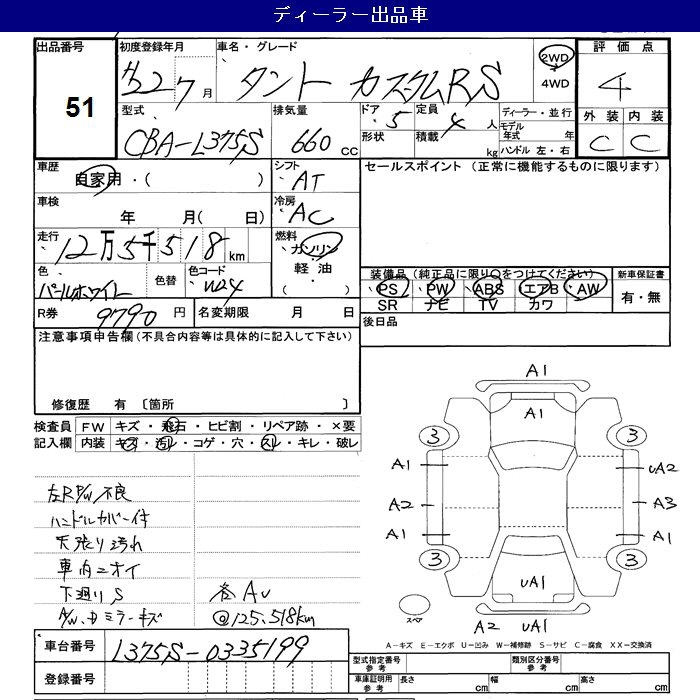 ディーラー出品車
出品番号 初度登録年月 車名・グレード 評価点
51
H22 7月 タント カスタムRS 2WD 4WD 4
型式 排気量 ドア 定員 ディーラー・並行 外装 内装
CBA-L375S 660 CC 5 4人 モデル年式 年 C C
形状 積載 kg ハンドル 左・右
車歴 自家用・( ) シフト AT セールスポイント (正常に機能するものに限ります)
車検 年 月( 日) 冷房 AC
走行 12万5千518km 燃料 ガソリン
軽油・( )
色 パールホワイト 色替 色コード W24
装備品 (純正品に限り○をつけてください) 新車保証書
PS・PW・ABS・エアB・AW 有・無
SR ナビ TV カワ
R券 9790円 名変期限 月 日 後日品
注意事項申告欄 (不具合内容等は具体的に記入して下さい)
修復歴 有 〔箇所 〕
検査員 FW キズ・飛石・ヒビ割・リペア跡・×要
記入欄 内装 キズ・汚レ・コゲ・穴・スレ・キレ・破レ
左RP/W不良
ハンドルカバー付
天張り汚れ
車内ニオイ
下廻りS
A/W、ドミラーキズ
各AU
@125,518km
A1
A1
3 3
A1 UA2
A2 A3
A1 A1
3 3
UA1
スペア
A2 UA1
A-キズ E-エクボ U-凹み W-補修跡 S-サビ C-腐食 XX-交換済
車台番号 L375S-0335199
登録番号
型式指定番号 参考 類別区分番号 参考
車庫証明用 参考 長さ cm 幅 cm 高さ cm